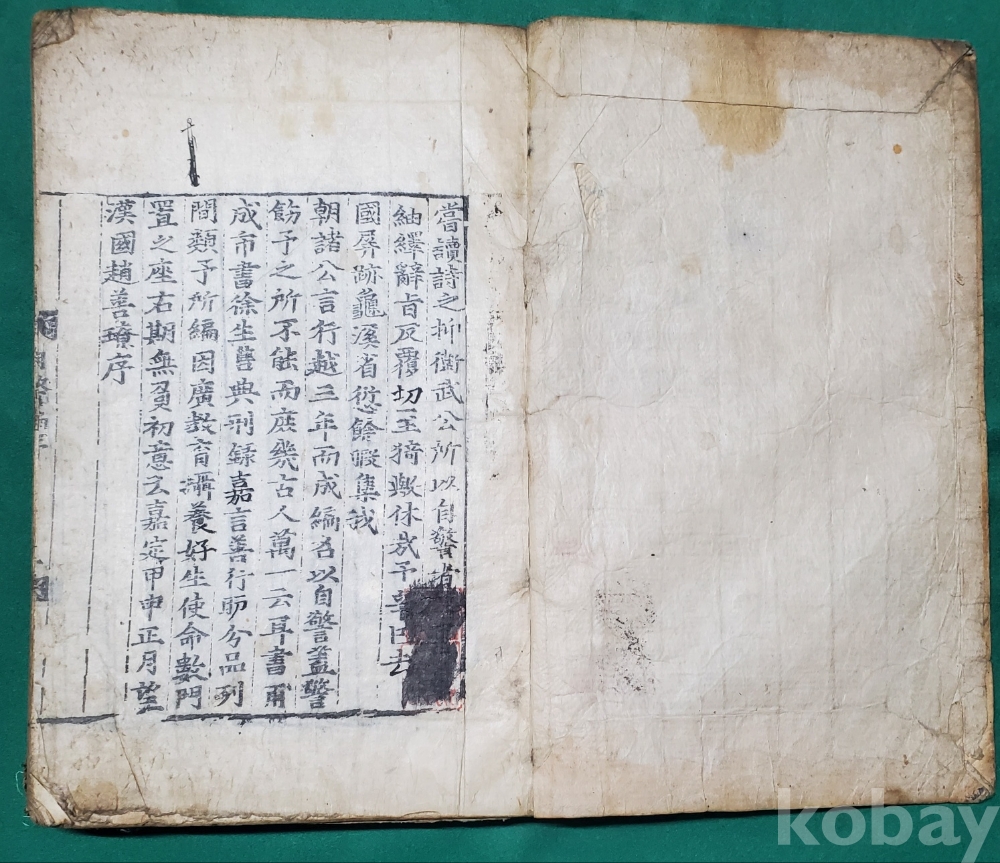 嘗讀詩之抑衛武公所以自警
紬繹辭旨反覆切至猗歟休㢤予
國屏跡龜溪省愆餘暇集我
朝諸公言行越三年而成編名以自警盖警
飭予之所不能而庶幾古人萬一云耳書甫
成帀書徐生舊典刑録嘉言善行昈分品列
間類予所編因廣教育攝養好生使命數門
置之座右期無負初意云嘉定甲申正月望
漢國趙善璙序
kobay